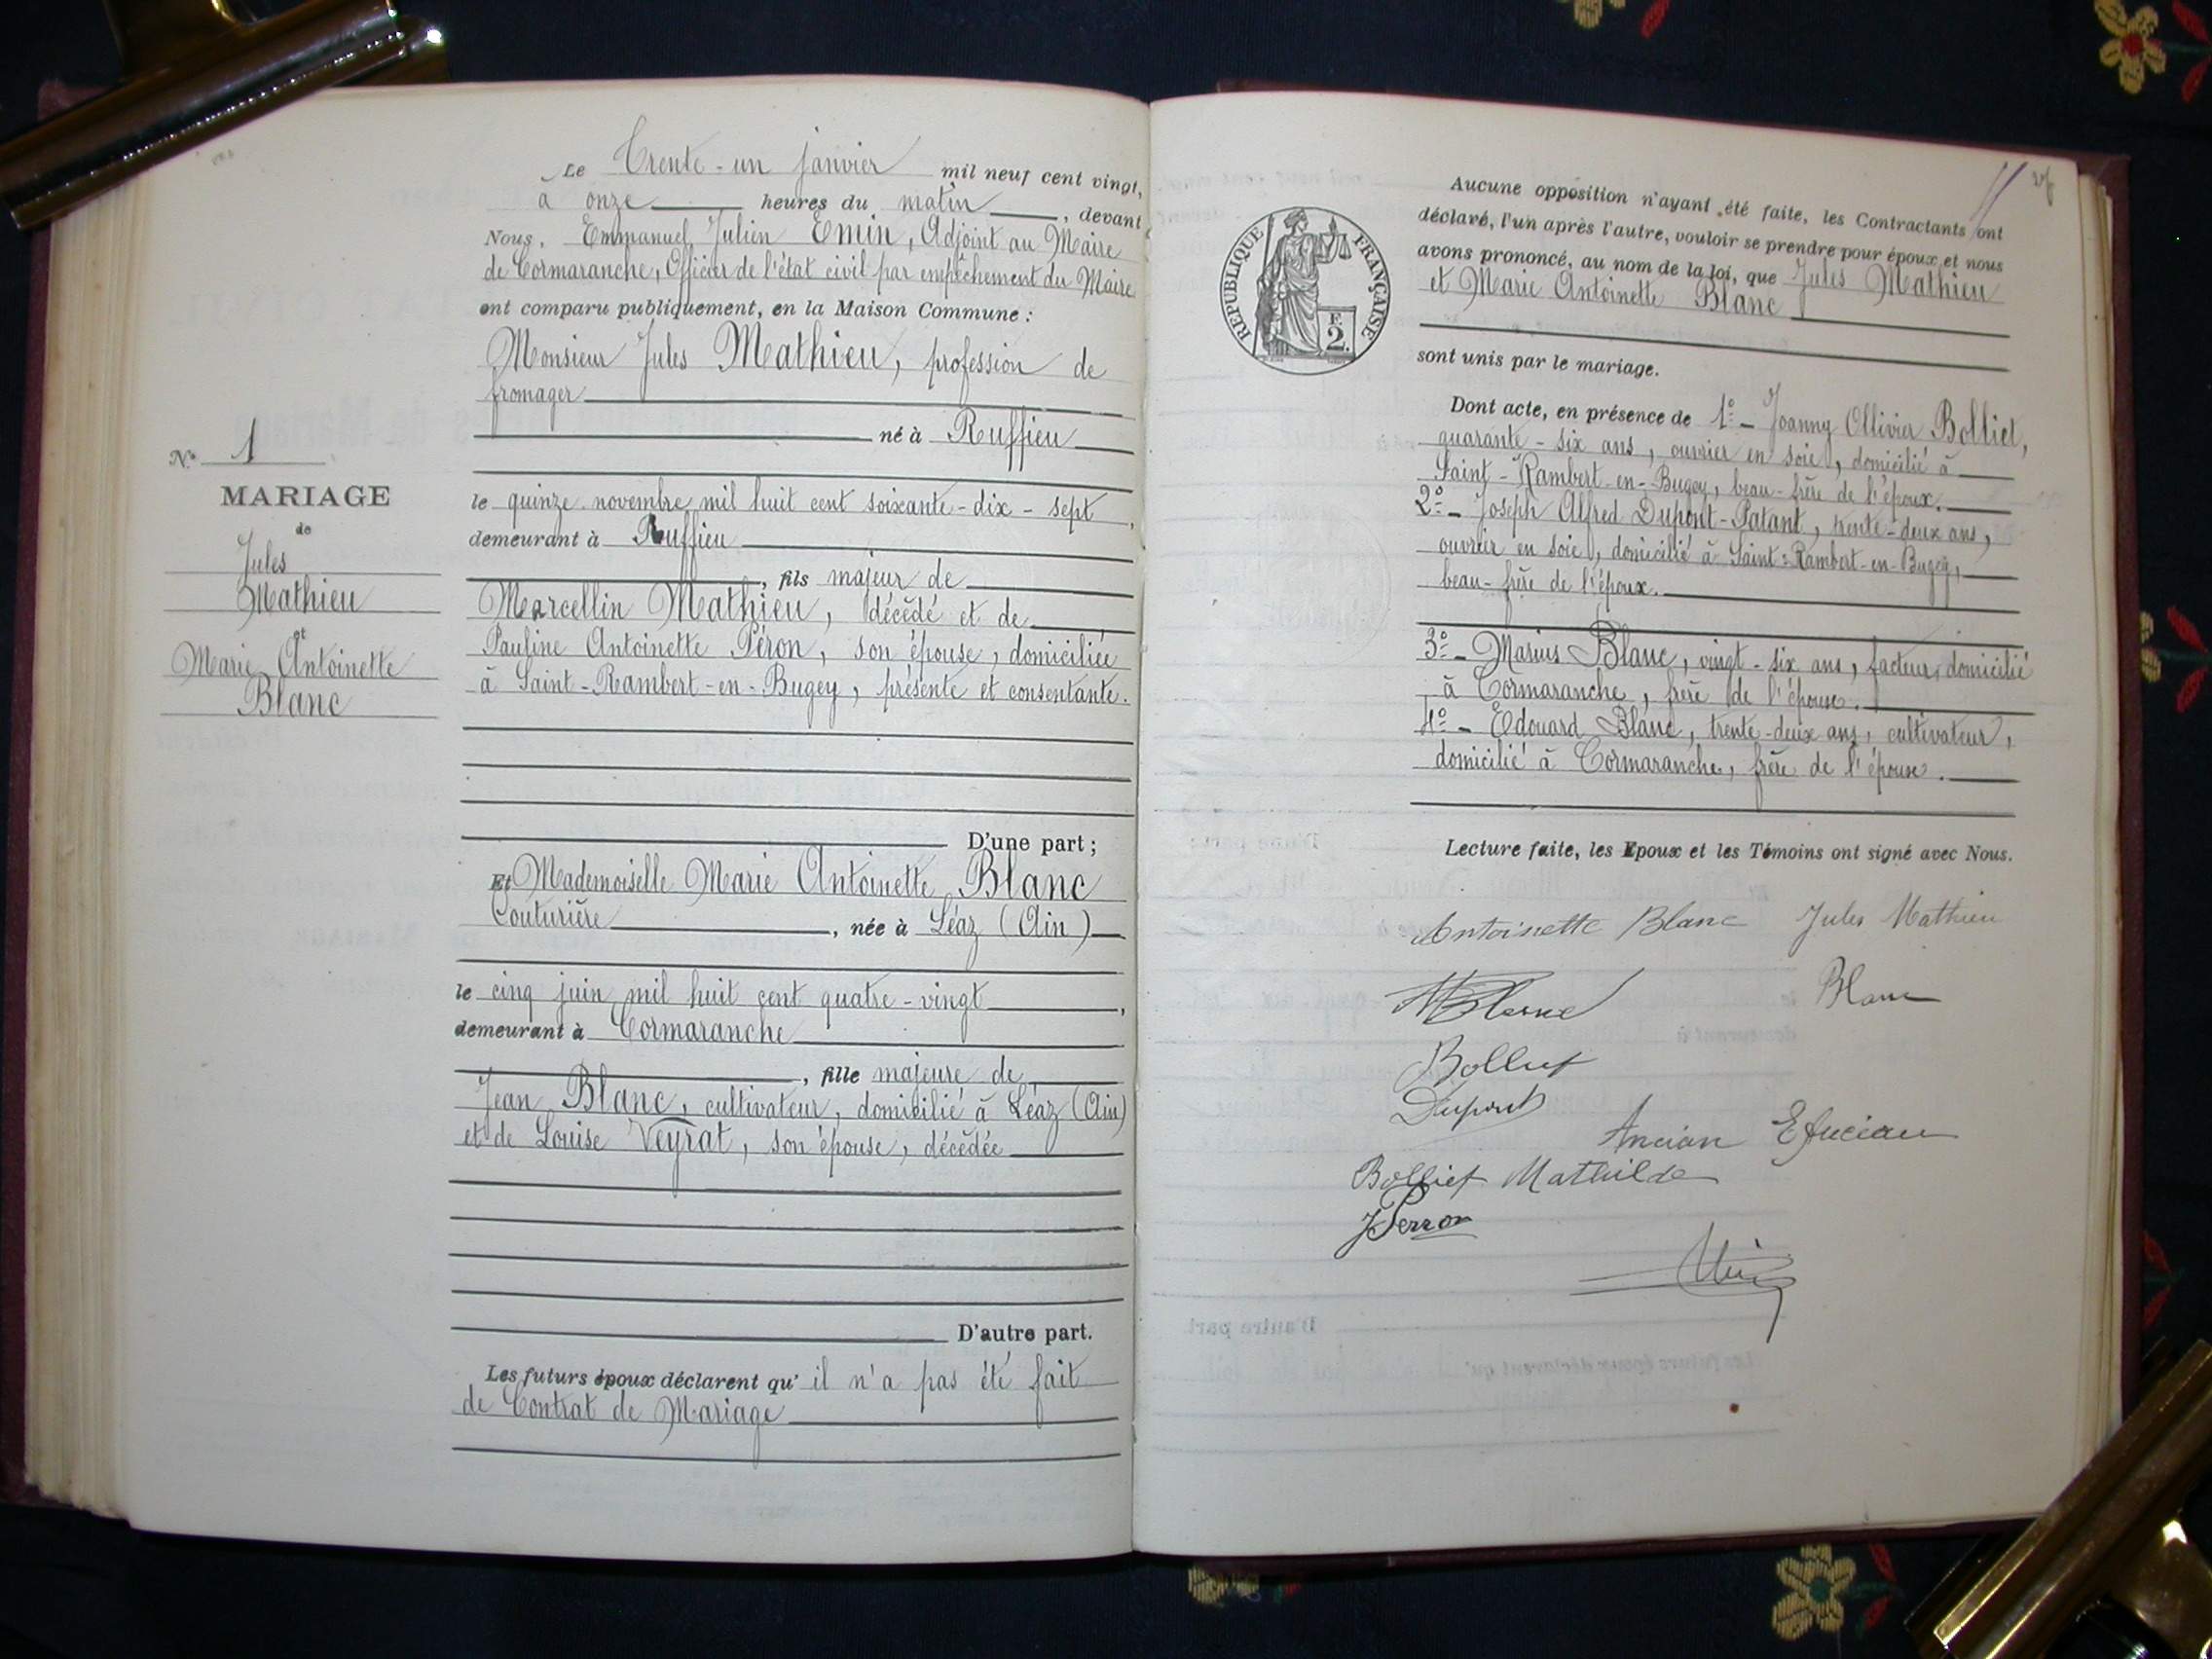 Le Trente-un janvier mil neuf cent vingt,
à onze heures du matin, devant
Nous, Emmanuel Julien Emin, Adjoint au Maire
de Cormaranche, Officier de l'état civil par empêchement du Maire
ont comparu publiquement, en la Maison Commune :
Monsieur Jules Mathieu, profession de
fromager
né à Ruffieu
le quinze novembre mil huit cent soixante-dix-sept,
demeurant à Ruffieu
, fils majeur de
Marcellin Mathieu, décédé et de
Pauline Antoinette Péron, son épouse, domiciliée
à Saint-Rambert-en-Bugey, présente et consentante.
D'une part ;
Et Mademoiselle Marie Antoinette Blanc
Couturière, née à Léaz (Ain)
le cinq juin mil huit cent quatre-vingt,
demeurant à Cormaranche
, fille majeure de
Jean Blanc, cultivateur, domicilié à Léaz (Ain)
et de Louise Veyrat, son épouse, décédée
D'autre part.
Les futurs époux déclarent qu'il n'a pas été fait
de Contrat de Mariage
N° 1
MARIAGE
de
Jules
Mathieu
et
Marie Antoinette
Blanc
Aucune opposition n'ayant été faite, les Contractants ont
déclaré, l'un après l'autre, vouloir se prendre pour époux et nous
avons prononcé, au nom de la loi, que Jules Mathieu
et Marie Antoinette Blanc
sont unis par le mariage.
RÉPUBLIQUE FRANÇAISE
F.
2.
Dont acte, en présence de 1° - Joanny Ollivier Bolliet,
quarante-six ans, ouvrier en soie, domicilié à
Saint-Rambert-en-Bugey, beau-frère de l'époux.
2° - Joseph Alfred Dupont-Patant, trente-deux ans,
ouvrier en soie, domicilié à Saint-Rambert-en-Bugey,
beau-frère de l'époux.
3° - Marius Blanc, vingt-six ans, facteur, domicilié
à Cormaranche, frère de l'épouse.
4° - Edouard Blanc, trente-deux ans, cultivateur,
domicilié à Cormaranche, frère de l'épouse.
Lecture faite, les Epoux et les Témoins ont signé avec Nous.
Antoinette Blanc Jules Mathieu
MBlanc Blanc
Bolliet
Dupont
Ancian
Bolliet Mathilde
JPerron